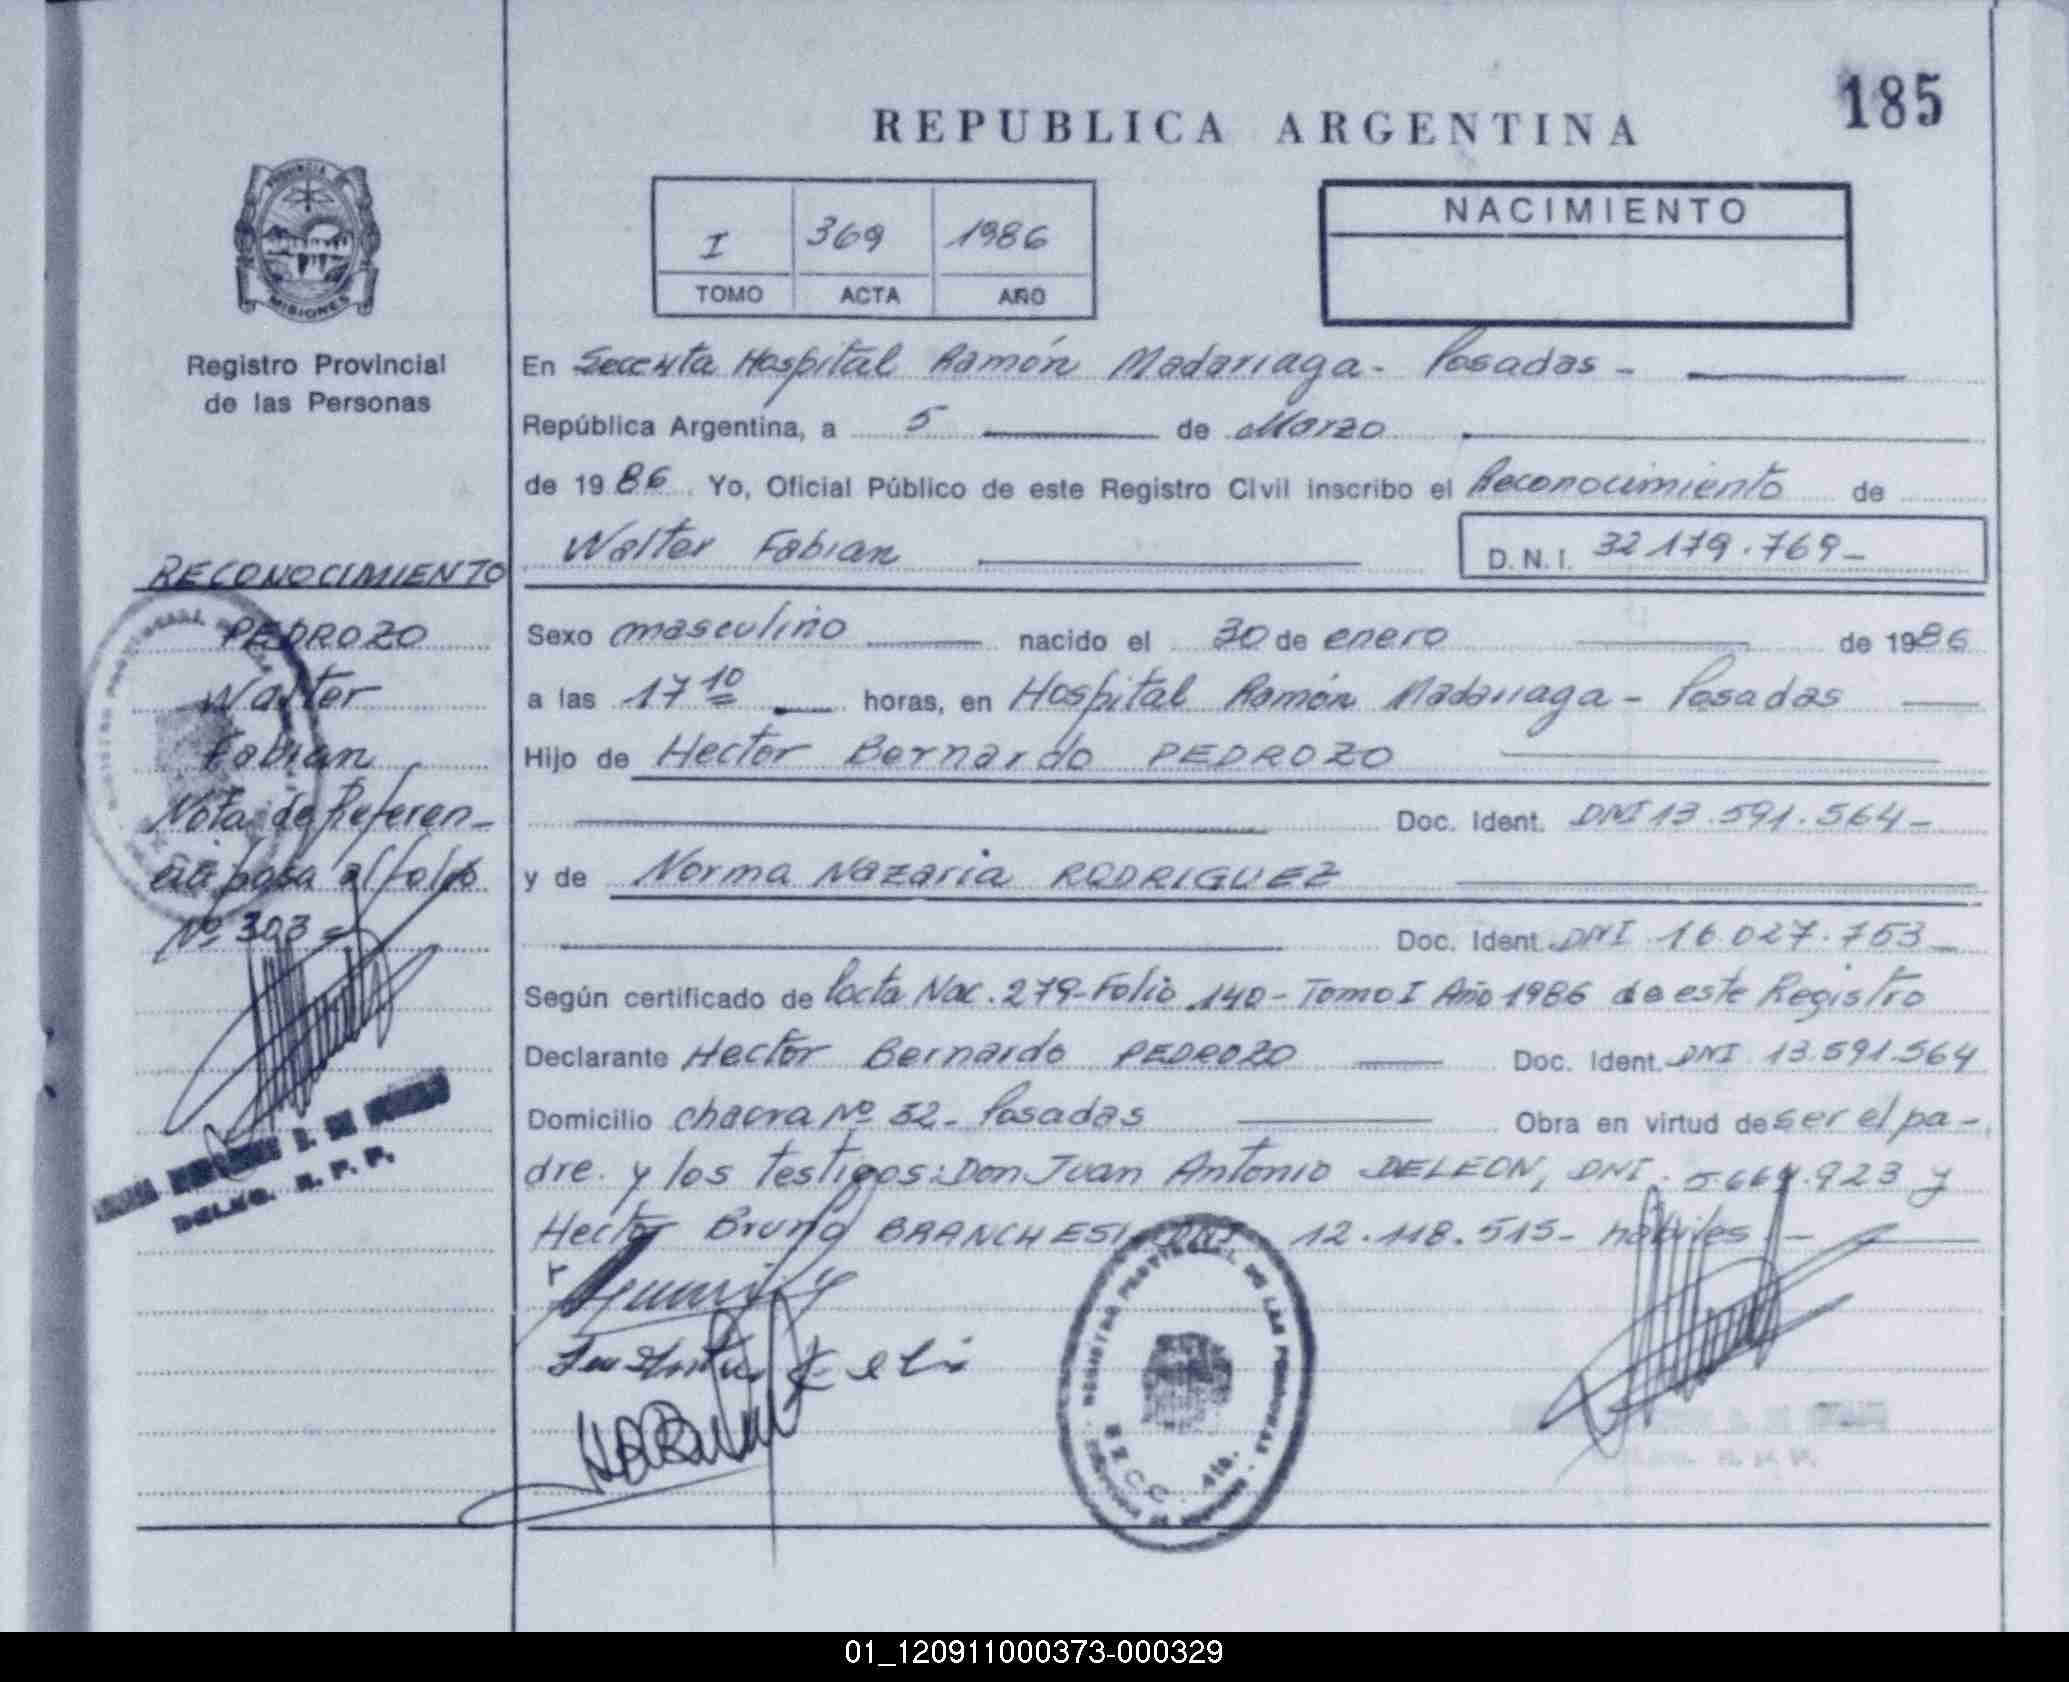 185
REPUBLICA ARGENTINA
I 369 1986
TOMO ACTA AÑO
NACIMIENTO
PROVINCIA DE
MISIONES
Registro Provincial
de las Personas
En Hospital Ramón Madariaga - Posadas -
República Argentina, a 5 de Marzo
de 1986. Yo, Oficial Público de este Registro Civil inscribo el Reconocimiento de
Walter Fabian D.N.I. 32 179.769-
RECONOCIMIENTO
PEDROZO
Walter
Fabian
Nota de Referen-
cia pasa al folio
Nº 303=
Sexo masculino nacido el 30 de enero de 1986
a las 17 10 horas, en Hospital Ramón Madariaga - Posadas
Hijo de Hector Bernardo PEDROZO
Doc. Ident. DNI 13.591.564-
y de Norma Nazaria RODRIGUEZ
Doc. Ident. DNI 16.027.753-
Según certificado de Nac. 279-Folio 140-Tomo I Año 1986 de este Registro
Declarante Hector Bernardo PEDROZO Doc. Ident. DNI 13.591.564
Domicilio chacra Nº 32- Posadas Obra en virtud de ser el pa-
dre. y los testigos: Don Juan Antonio DELEON, DNI y
Hector Bruno BRANCHESI DNI 12.118.515- habiles -
REGISTRO PROVINCIAL DE LAS PERSONAS
01_120911000373-000329